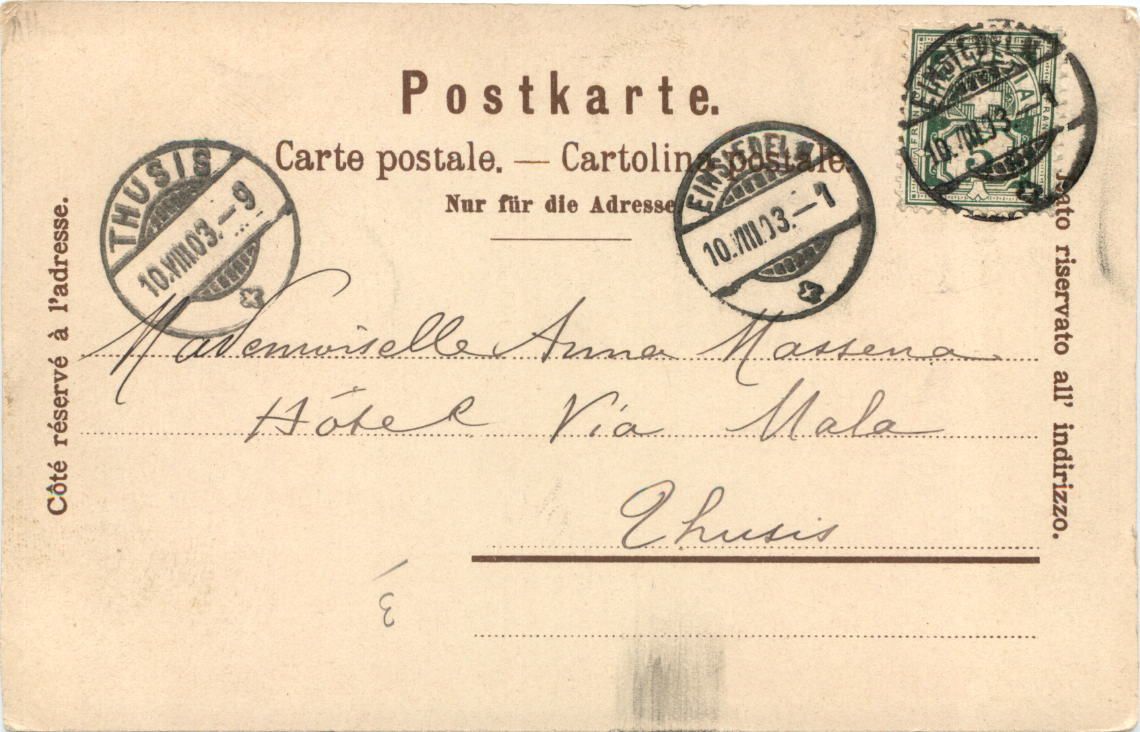 Postkarte.
Carte postale. — Cartolina postale.
Nur für die Adresse
Côté réservé à l'adresse.
Lato riservato all' indirizzo.
EINSIEDELN
10.VIII.03.—1
THUSIS
10.VIII.03.—9
EINSIEDELN
10.VIII.03.—1
Mademoiselle Anna Massena
Hôtel Via Mala
Thusis